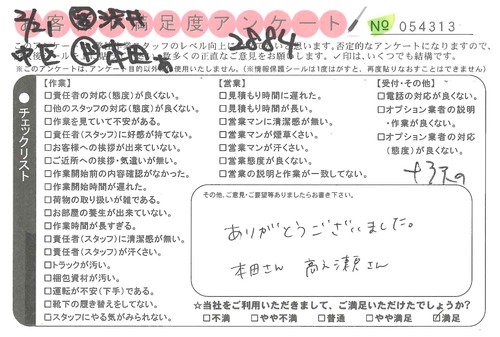 お客様満足度アンケート
№ 054313
2/21
中区
2884
このアンケートは
スタッフのレベル向上に
います。否定的なアンケートになりますので、
多くの正直なご意見をお聞かせ下さい。✓印は、いくつでも結構です。
※このアンケートは、アンケート目的以外
使用いたしません。(※情報保護シールは1度はがすと、再度貼りなおすことはできません)
チェックリスト
【作業】
□責任者の対応(態度)が良くない。
□他のスタッフの対応(態度)が良くない。
□作業を見ていて不安がある。
□責任者(スタッフ)に好感が持てない。
□お客様への挨拶が出来ていない。
□ご近所への挨拶・気遣いが無い。
□作業開始前の内容確認がなかった。
□作業開始時間が遅れた。
□荷物の取り扱いが雑である。
□お部屋の養生が出来ていない。
□作業時間が長すぎる。
□責任者(スタッフ)に清潔感が無い。
□責任者(スタッフ)が汗くさい。
□トラックが汚い。
□梱包資材が汚い。
□運転が不安(下手)である。
□靴下の履き替えをしてない。
□スタッフにやる気がみられない。
【営業】
□見積もり時間に遅れた。
□見積もり時間が長い。
□営業マンに清潔感が無い。
□営業マンが煙草くさい。
□営業マンが汗くさい。
□営業態度が良くない。
□営業の説明と作業が一致してない。
【受付・その他】
□電話の対応が良くない。
□オプション業者の説明
・作業が良くない。
□オプション業者の対応
(態度)が良くない。
その他、ご意見・ご要望等ありましたらお書き下さい。
ありがとうございました。
本田さん 高之瀬さん
☆当社をご利用いただきまして、ご満足いただけたでしょうか?
□不満 □やや不満 □普通 □やや満足 ☑満足